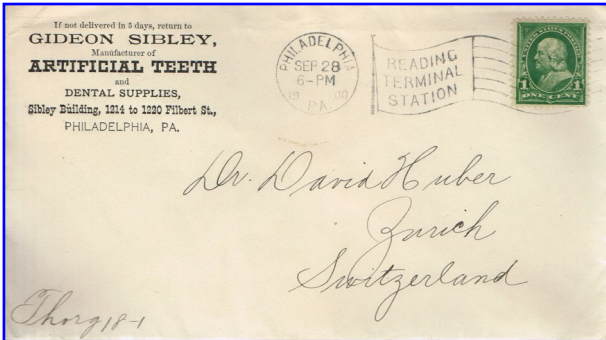 If not delivered in 5 days, return to
GIDEON SIBLEY,
Manufacturer of
ARTIFICIAL TEETH
and
DENTAL SUPPLIES,
Sibley Building, 1214 to 1220 Filbert St.,
PHILADELPHIA, PA.
PHILADELPHIA
SEP 28
6-PM
1900
PA.
READING
TERMINAL
STATION
1 1
ONE CENT
Dr. David Huber
Zurich
Switzerland